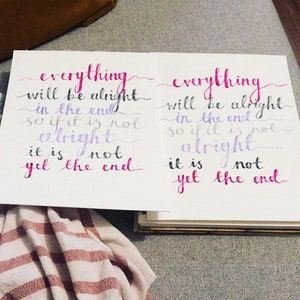 everything
will be alright
in the end
so if it is not
alright
it is not
yet the end
everything
will be alright
in the end
so if it is not
alright
it is not
yet the end